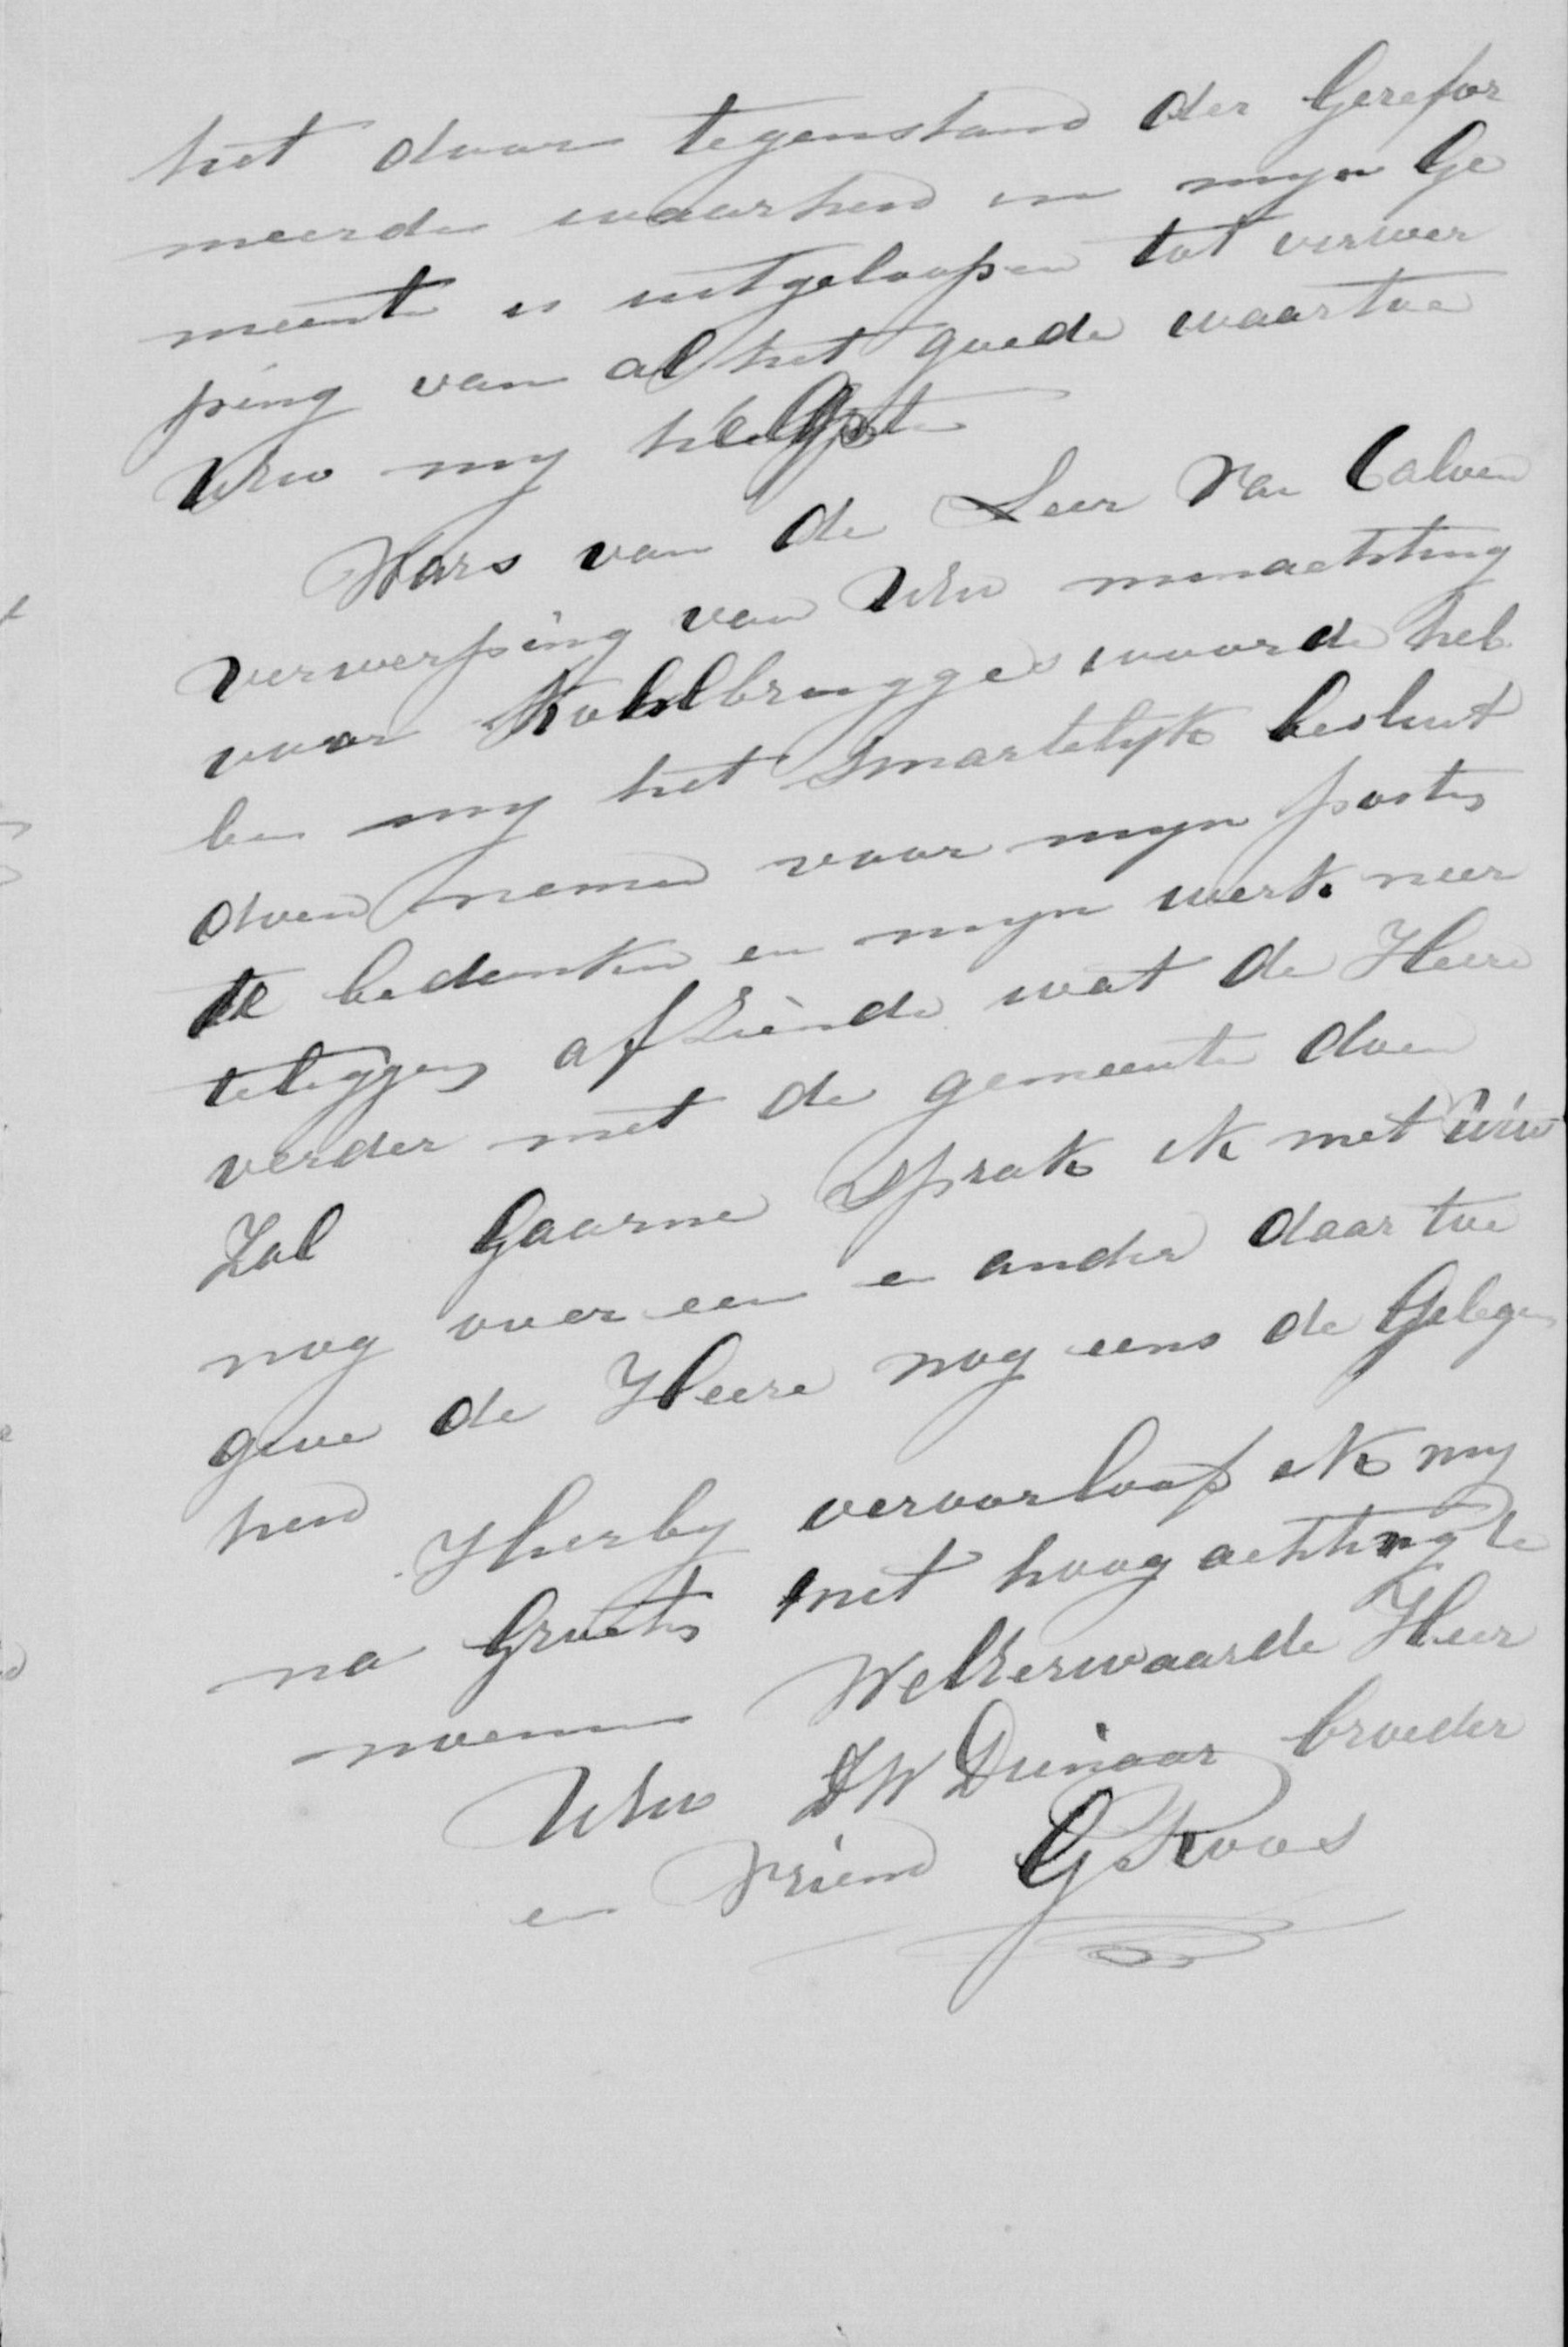 het door tegenstand der Gerefor
meerde waarheid in myn Ge
meente is uitgeloopen tot verwer
ping van al het goede waartoe
UEw my hielpt
Wars van de Leer van Calvin
verwerping van UEw minachting
voor Kohlbrugges woorde heb
ben my het smartelyk besluit
doen nemen voor myn posten
te bedanken en myn werk neer
teleggen afziende wat de Heere
verder met de gemeente doen
Zal Gaarne Sprak ik met UEw
nog over een en ander daar toe
geve de Heere nog eens de Gelegen
heid Hierby veroorloof ik my
na Groete met hoogachting te
noemen WelEerwaarde Heer
UEw DW Dienaar broeder
en Vriend G Roos